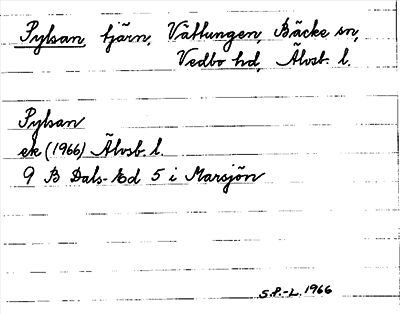 Pylsan, tjärn, Vättungen, Bäcke sn,
Vedbo hd, Älvsb. l.
Pylsan
ek (1966) Älvsb. l.
9 B Dals-Ed 5 i Marsjön
S.P.-L. 1966